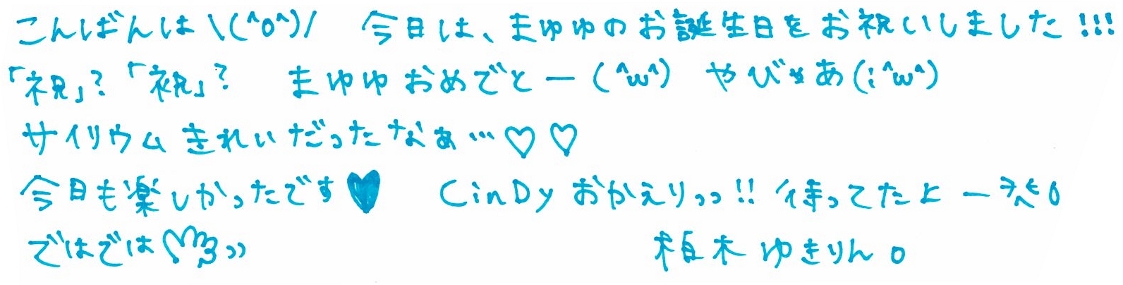 こんばんは\(^o^)/ 今日は、まゆゆのお誕生日をお祝いしました!!!
「祝」?「祝」? まゆゆおめでとー(^w^) やびゃあ(;^w^)
サイリウムきれいだったなぁ…♡♡
今日も楽しかったです♥ CinDyおかえりっっ!!待ってたよー
ではでは 柏木ゆきりん。